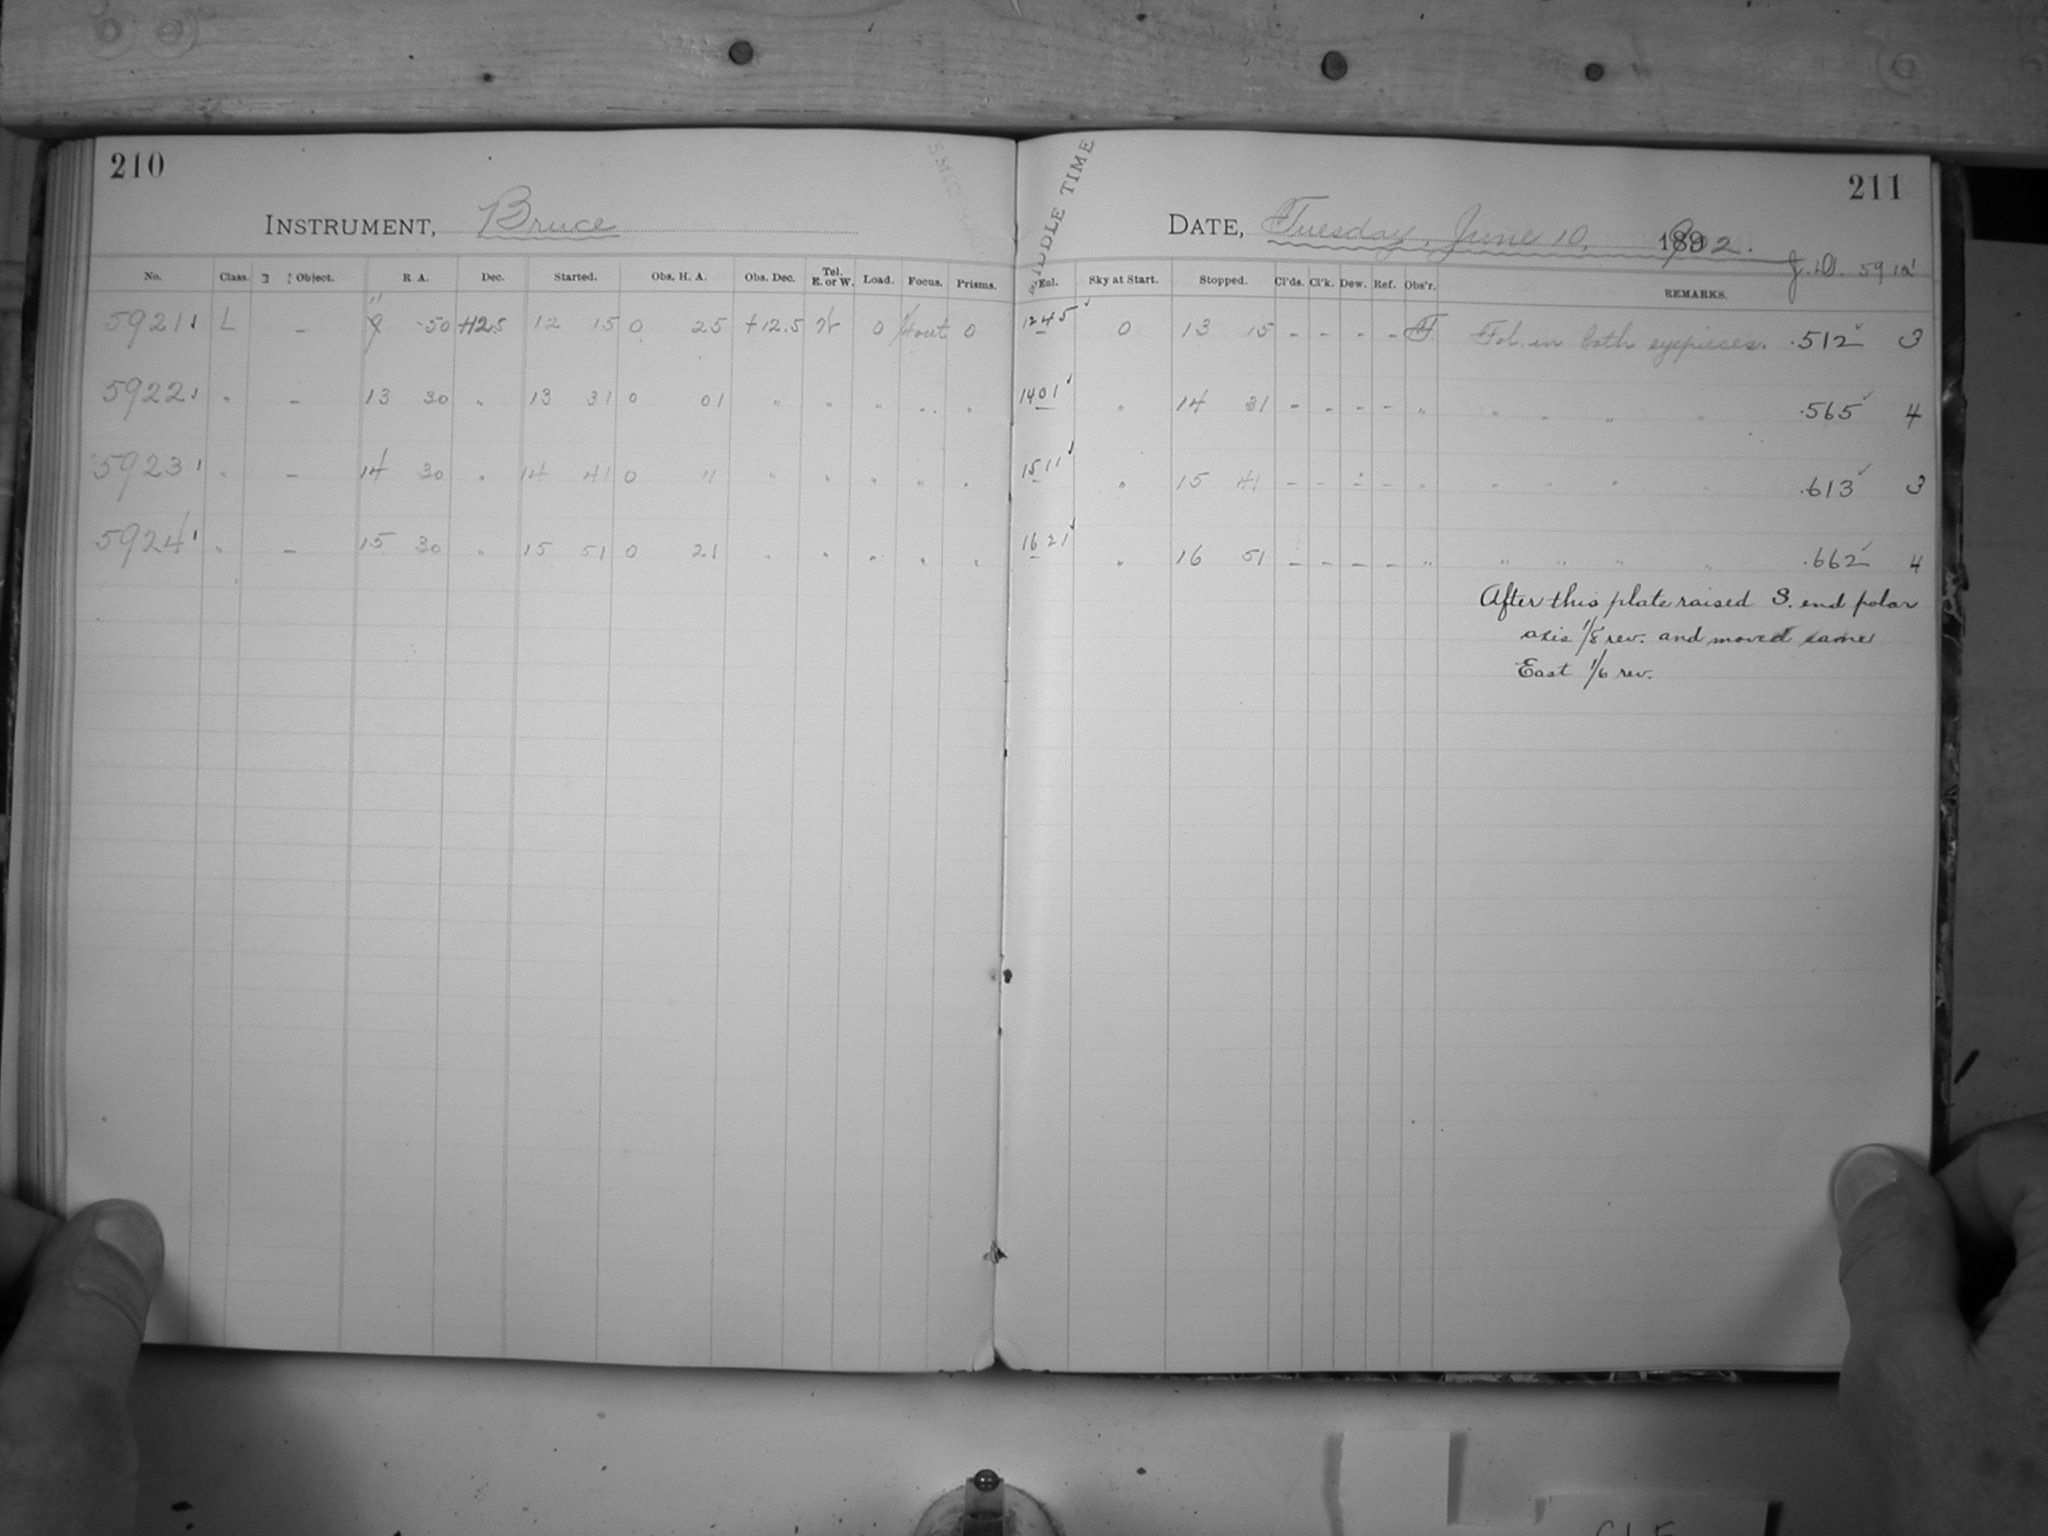 210
INSTRUMENT, Bruce
No. Class. Object. R. A. Dec. Started. Obs. H. A. Obs. Dec. Tel. E. or W. Load. Focus. Prisms.
5921 L - 50 +12.5 12 15 0 25 +12.5 0 0
5922 " - 13 30 " 13 31 0 01 " " " " "
5923 " - 14 30 " 14 41 0 11 " " " " "
5924 " - 15 30 " 15 51 0 21 " " " " "
211
MIDDLE TIME
DATE, Tuesday, June 10, 1902.
J.D. 59
Sky at Start. Stopped. Cl'ds. Cl'k. Dew. Ref. Obs'r. REMARKS.
1245 ✓ 0 13 15 - - - - F. Fol. in both eyepieces. .512 ✓ 3
1401 ✓ " 14 31 - - - - " " " " " .565 ✓ 4
1511 ✓ " 15 41 - - - - " " " " " .613 ✓ 3
1621 ✓ " 16 51 - - - - " " " " " .662 ✓ 4
After this plate raised S. end polar
axis 1/8 rev. and moved same
East 1/6 rev.